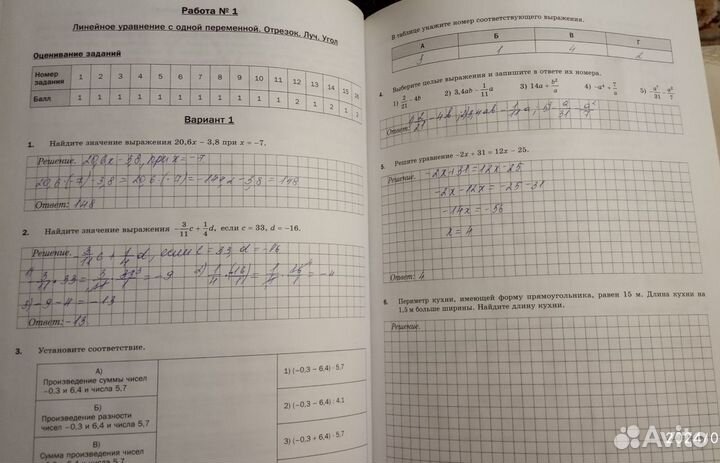 Работа № 1
Линейное уравнение с одной переменной. Отрезок. Луч. Угол
Оценивание заданий
Номер задания 1 2 3 4 5 6 7 8 9 10 11 12 13 14 15 16
Балл 1 1 1 1 1 1 1 1 1 1 1 2 1 2 1 2
Вариант 1
1. Найдите значение выражения 20,6x − 3,8 при x = −7.
Решение. 20,6x − 3,8, при x = −7
20,6·(−7) − 3,8 = 20,6·(−7) = −144,2 − 3,8 = 148
Ответ: 148
2. Найдите значение выражения −3/11c + 1/4d, если c = 33, d = −16.
Решение. −3/11c + 1/4d, если c = 33, d = −16
3) −9 − 4 = −13
Ответ: −13.
3. Установите соответствие.
А)
Произведение суммы чисел
−0,3 и 6,4 и числа 5,7
1) (−0,3 − 6,4) · 5,7
Б)
Произведение разности
чисел −0,3 и 6,4 и числа 5,7
2) (−0,3 − 6,4) : 4,1
В)
Сумма произведения чисел
3) (−0,3 + 6,4) · 5,7
В таблице укажите номер соответствующего выражения.
А Б В Г
3 1 4 2
4. Выберите целые выражения и запишите в ответе их номера.
1) 2/21 − 4b 2) 3,4ab − 1/11a 3) 14a + b²/a 4) −a⁴ + 7/a 5) a²/31 − a²/7
Ответ:
5. Решите уравнение −2x + 31 = 12x − 25.
Решение. −2x + 31 = 12x − 25
−2x − 12x = −25 − 31
−14x = −56
x = 4
Ответ: 4
6. Периметр кухни, имеющей форму прямоугольника, равен 15 м. Длина кухни на
1,5 м больше ширины. Найдите длину кухни.
Решение.
2024
Avito